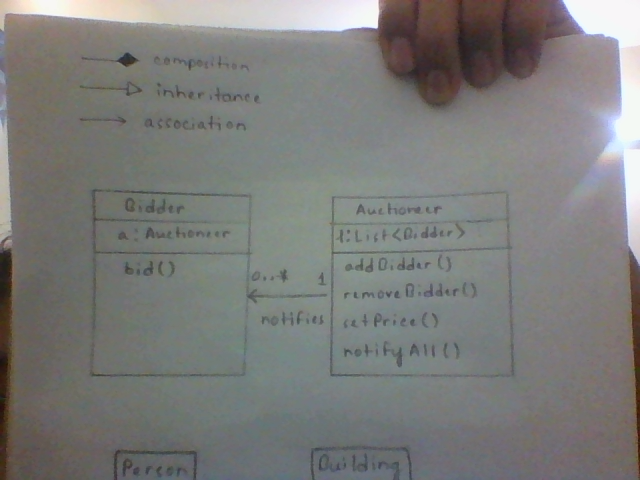 composition
inheritance
association
Bidder
a: Auctioneer
bid()
0..*
1
notifies
Auctioneer
l:List<Bidder>
addBidder()
removeBidder()
setPrice()
notifyAll()
Person
Building